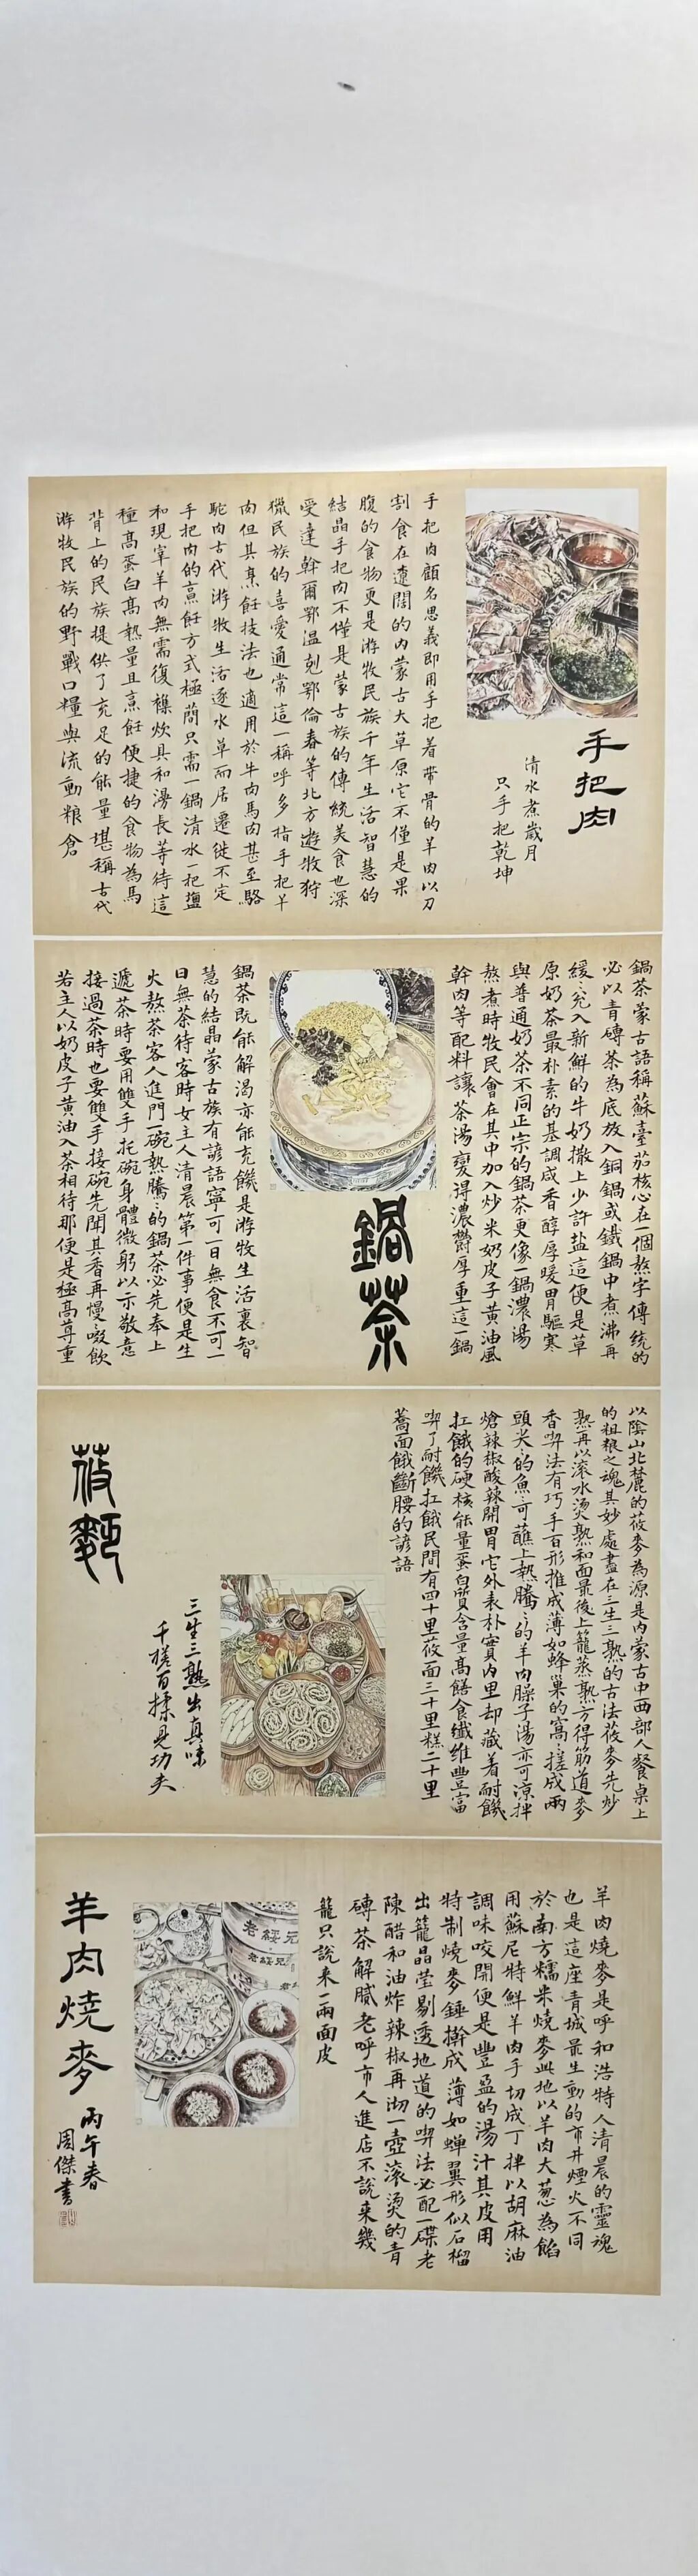 手把肉
清水煮歲月
只手把乾坤
手把肉顧名思義即用手把着帶骨的羊肉以刀
割食在遼闊的内蒙古大草原它不僅是果
腹的食物更是游牧民族千年生活智慧的
結晶手把肉不僅是蒙古族的傳統美食也深
受達斡爾鄂溫剋鄂倫春等北方遊牧狩
獵民族的喜愛通常這一稱呼多指手把羊
肉但其烹飪技法也適用於牛肉馬肉甚至駱
駝肉古代游牧生活逐水草而居遷徙不定
手把肉的烹飪方式極簡只需一鍋清水一把鹽
和現宰羊肉無需復雜炊具和漫長等待這
種高蛋白高熱量且烹飪便捷的食物為馬
背上的民族提供了充足的能量堪稱古代
游牧民族的野戰口糧與流動粮倉
鍋茶蒙古語稱蘇臺茄核心在一個熬字傳统的
必以青磚茶為底放入銅鍋或鐵鍋中煮沸再
緩緩兌入新鮮的牛奶撒上少許盐這便是草
原奶茶最朴素的基調咸香醇厚暖胃驅寒
與普通奶茶不同正宗的鍋茶更像一鍋濃湯
熬煮時牧民會在其中加入炒米奶皮子黃油風
幹肉等配料讓茶湯變得濃鬱厚重這一鍋
鍋茶
鍋茶既能解渴亦能充饑是游牧生活裏智
慧的結晶蒙古族有諺語寧可一日無食不可一
日無茶待客時女主人清晨第一件事便是生
火熬茶客人進門一碗熱騰騰的鍋茶必先奉上
遞茶時要用雙手托碗身體微躬以示敬意
接過茶時也要雙手接碗先聞其香再慢慢啜飲
若主人以奶皮子黃油入茶相待那便是極高尊重
以陰山北麓的莜麥為源是内蒙古中西部人餐桌上
的粗粮之魂其妙處盡在三生三熟的古法莜麥先炒
熟再以滚水燙熟和面最後上籠蒸熟方得筋道麥
香喫法有巧手百形推成薄如蜂巢的窩窩搓成兩
頭尖尖的魚魚可蘸上熱騰騰的羊肉臊子湯亦可涼拌
熗辣椒酸辣開胃它外表朴實内里却藏着耐饑
扛餓的硬核能量蛋白質含量高膳食纖维豐富
喫了耐饑扛餓民間有四十里莜面三十里糕二十里
蕎面餓斷腰的諺語
三生三熟出真味
千搓百揉見功夫
莜麵
羊肉燒麥是呼和浩特人清晨的靈魂
也是這座青城最生動的市井煙火不同
於南方糯米燒麥此地以羊肉大葱為餡
用蘇尼特鮮羊肉手切成丁拌以胡麻油
調味咬開便是豐盈的湯汁其皮用
特制燒麥錘擀成薄如蟬翼形似石榴
出籠晶莹剔透地道的喫法必配一碟老
陳醋和油炸辣椒再沏一壺滚燙的青
磚茶解膩老呼市人進店不說来幾
籠只說来一兩面皮
羊肉燒麥
丙午春
周傑書